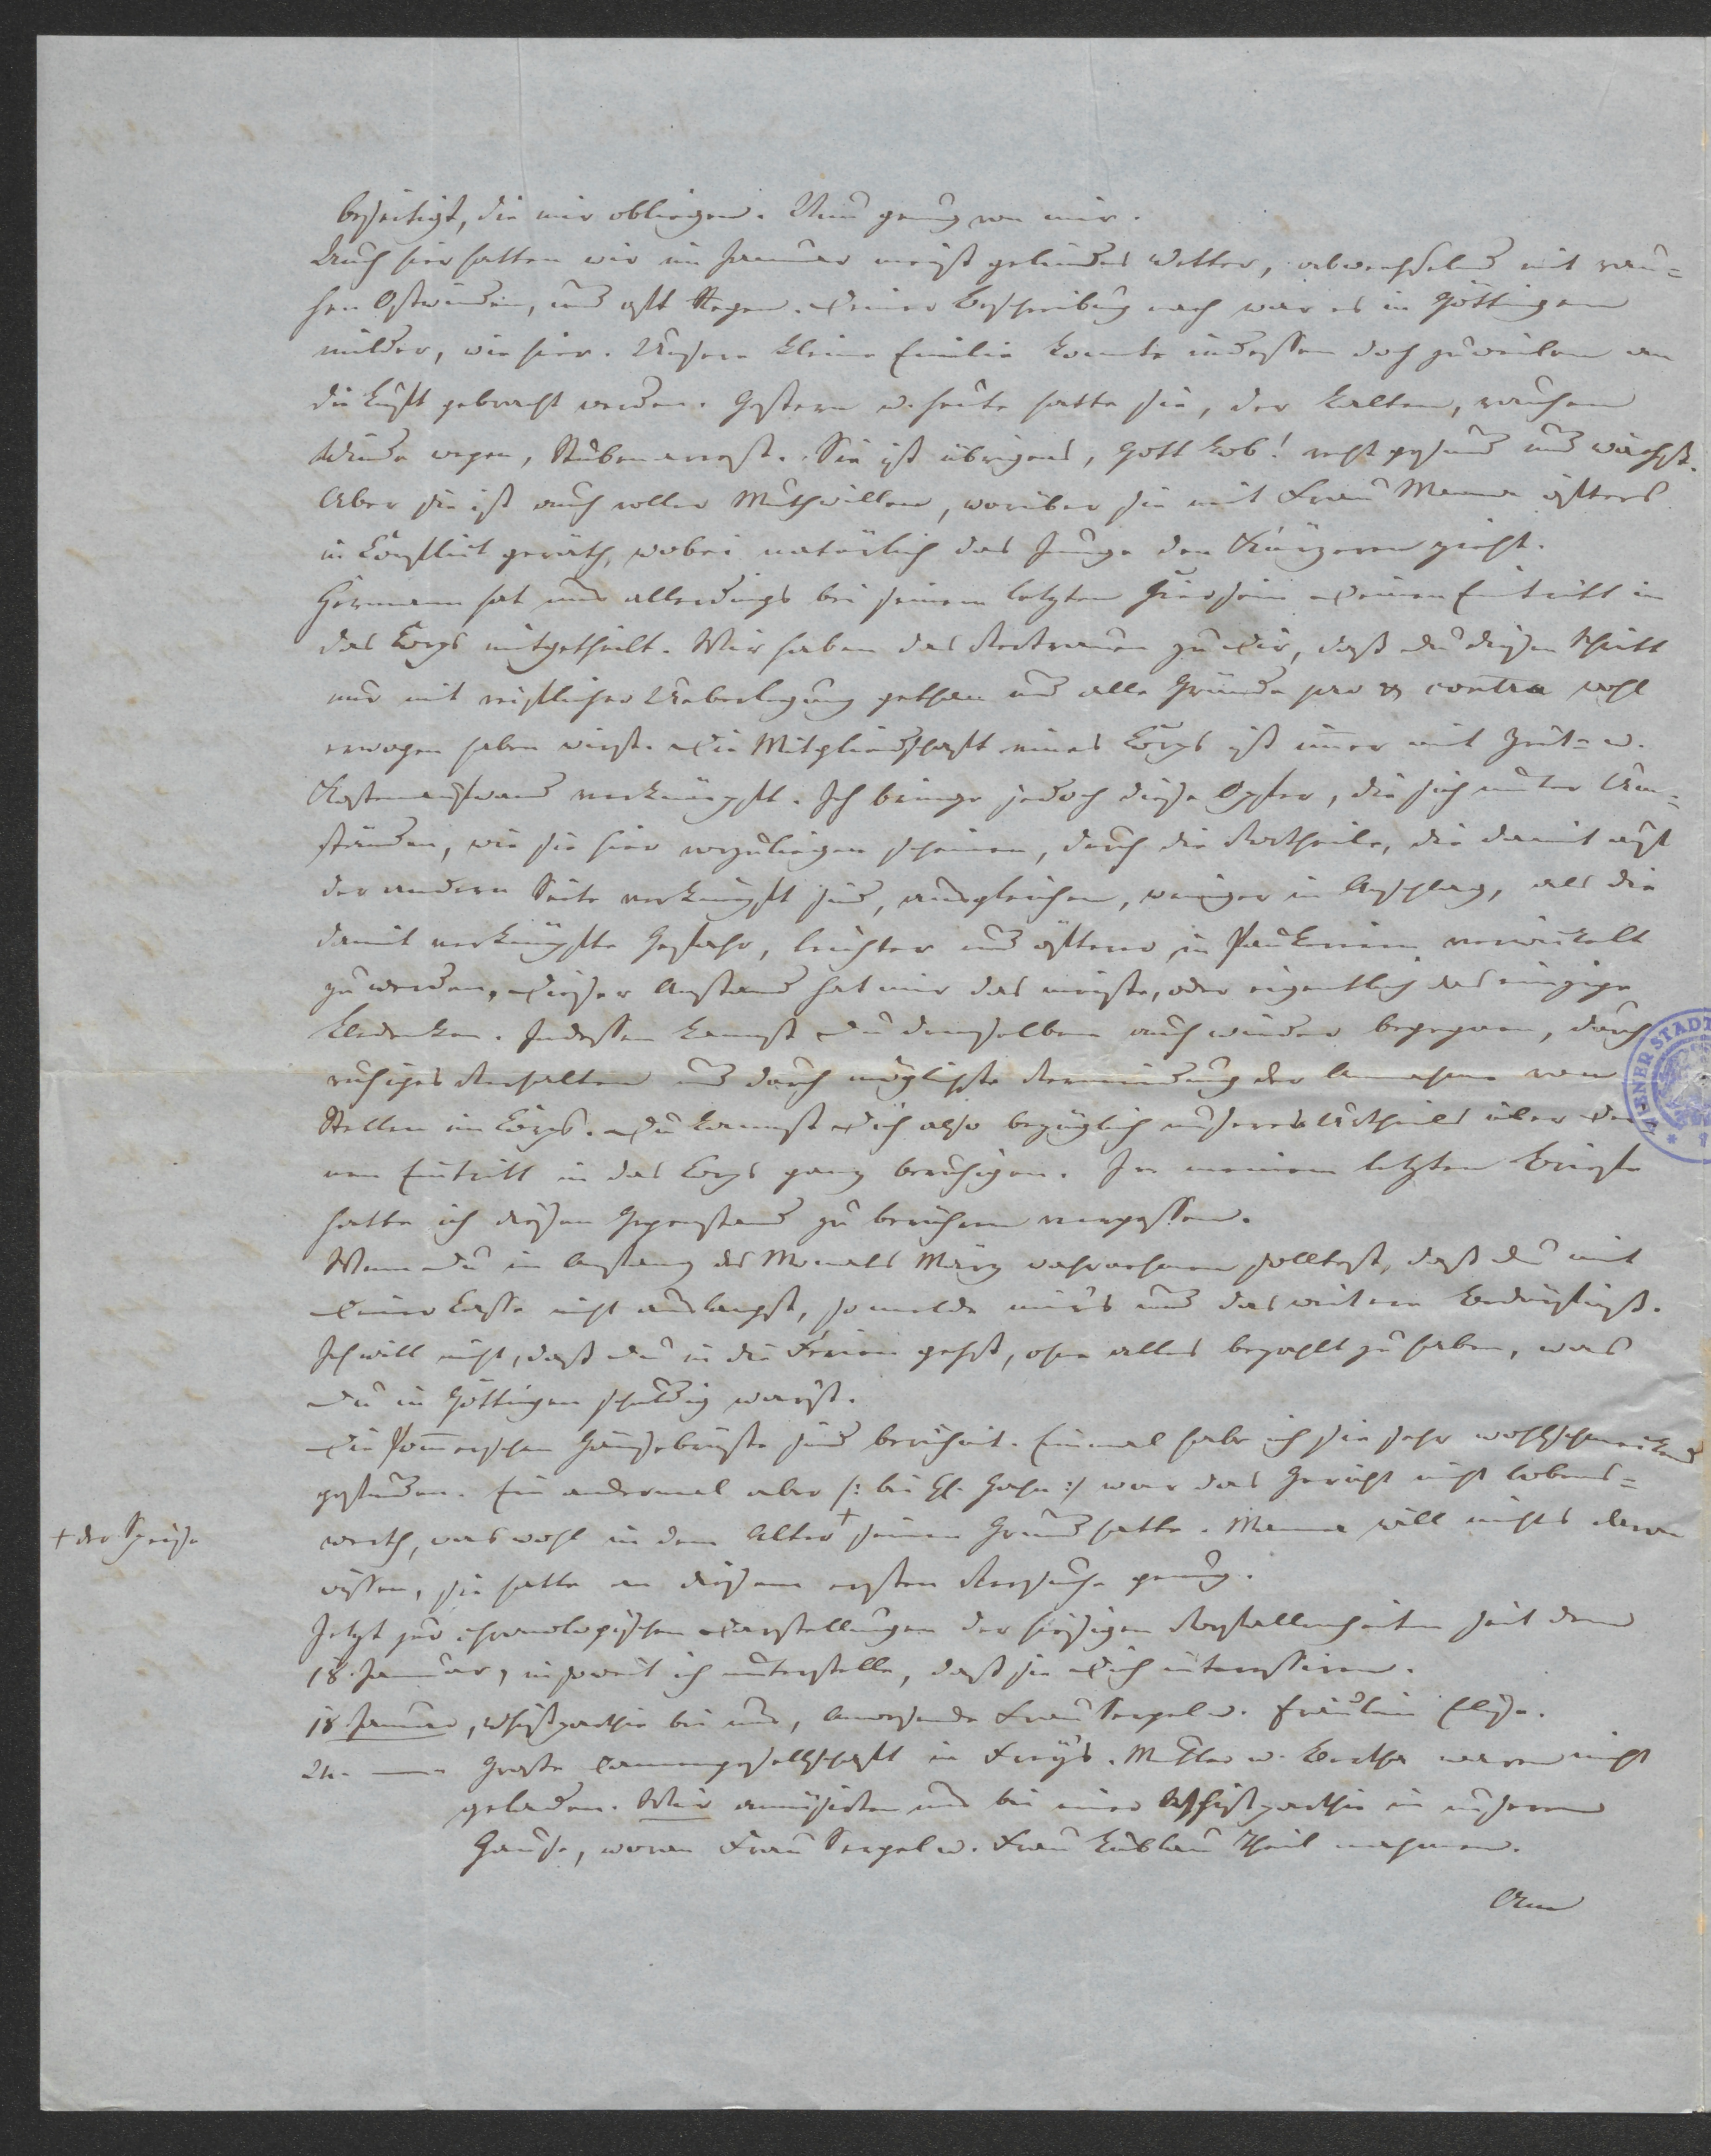 beseitigt, die mir obliegen. Nun genug von mir.
Auch hier hatten wir im Januar meist gelindes Wetter, abwechselnd mit rau=
hen Ostwinden, und oft Regen. Deiner Beschreibung nach war es in Göttingen
milder, wie hier. Unsere kleine Emilie konnte indessen doch zuweilen an
die Luft gebracht werden. Gestern u. heute hatte sie, der kalten, rauhen
Winde wegen, Stubenarrest. Sie ist übrigens, Gott Lob! recht gesund und wächst.
Aber sie ist auch voller Muthwillen, worüber sie mit Frau Mama öfters
in Conflict geräth, wobei natürlich das Junge den Kürzeren zieht.
Hermann hat uns allerdings bei seinem letzten Hiersein Deinen Eintritt in
das Corps mitgetheilt. Wir haben das Vertrauen zu Dir, daß du diesen Schritt
nur mit reiflicher Ueberlegung gethan und alle Gründe pro & contra wohl
erwogen haben wirst. Die Mitgliedschaft eines Corps ist immer mit Zeit= u.
Kostenaufwand verknüpft. Ich bringe jedoch diese Opfer, die sich unter Um=
ständen, wie sie hier vorzuliegen scheinen, durch die Vortheile, die damit auf
der andern Seite verknüpft sind, ausgleichen, weniger in Anschlag, als die
damit verknüpfte Gefahr, leichter und öfterer in Paukereien verwickelt
zu werden. Dieser Umstand hat mir das meiste, oder eigentlich das einzige
Bedenken. Indessen kannst Du demselben auch wieder begegnen, durch
ruhiges Verhalten und durch möglichste Vermeidung der Annahme von
Stellen im Corps. Du kannst Dich also bezüglich unseres Urtheils über Dei
nen Eintritt in das Corps ganz beruhigen. In meinem letzten Briefe
hatte ich diesen Gegenstand zu berühren vergessen.
Wenn du im Anfang des Monats März wahrnehmen solltest, daß du mit
Deiner Casse nicht auslangst, so melde mir's und das weitere Bedürfniß.
Ich will nicht, daß du in die Ferien gehst, ohne alles bezahlt zu haben, was
Du in Göttingen schuldig warst.
Die Pommerschen Gänsebrüste sind berühmt. Einmal habe ich sie sehr wohlschmeckend
gefunden. Ein andermal aber /: bei Gahn :/ war das Gericht nicht lobens=
werth, was wohl in dem Alter + seinen Grund hatte. Mama will nichts davon
+ der Speise
wissen, sie hatte an diesem ersten Versuche genug.
Jetzt zur chronologischen Darstellungen der hiesigen Vorfallenheiten seit dem
18. Januar, insoweit ich unterstelle, daß sie Dich interessiren.
18 Januar, Whistparthie bei uns, Anwesende Frau Seepel u. Fräulein Elise.
21. — Große Damengesellschaft in Frey's. Mutter u. Bertha waren nicht
geladen. Wir amüsirten uns bei einer Whistparthie in unserem
Hause, woran Frau Seepel u. Frau Cublau Theil nahmen.
Am